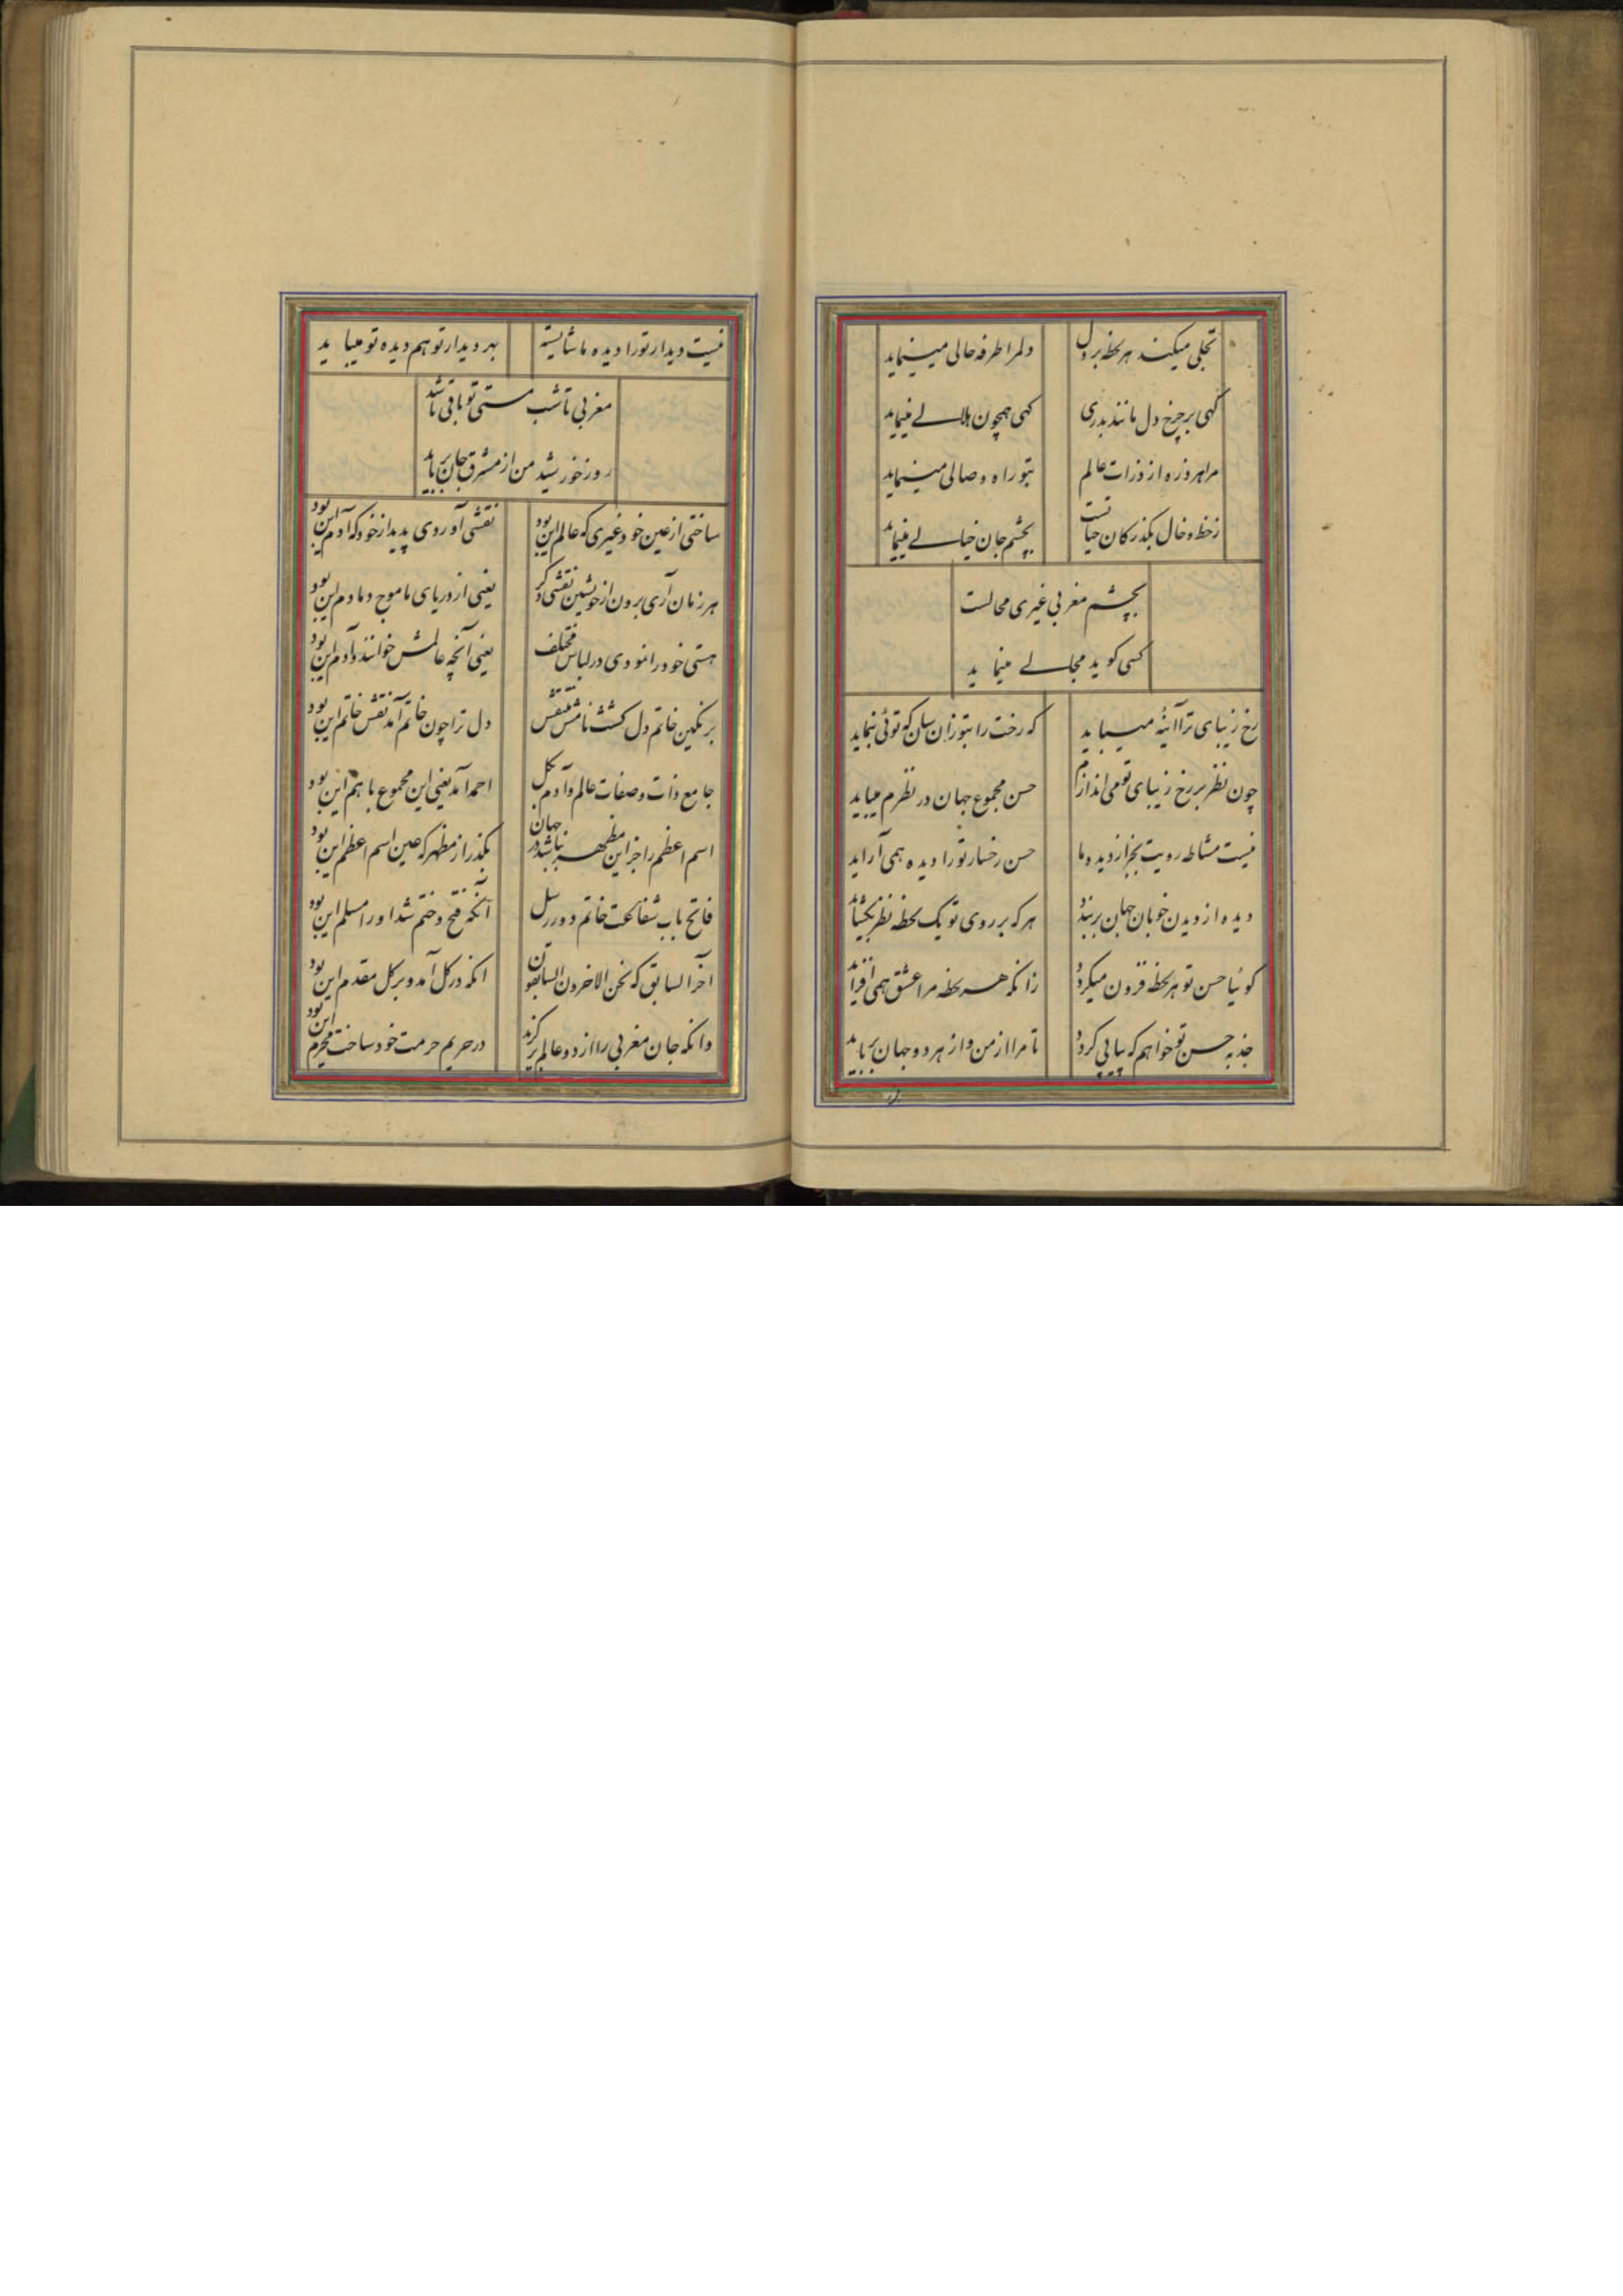 تجلی میکند هر لحظه بر دل
دلمرا طرفه حالی مینماید
گهی بر چرخ دل مانند بدری
گهی همچون هلالے مینماید
مرا هر ذره از ذرات عالم
بتو راه وصالی مینماید
زخط و خال بگذر کان خیالست
بچشم جان خیالے مینماید
بچشم مغربی غیری محالست
کسی کوید مجالے مینماید
رخ زیبای ترا آئینه میباید
که رخت را بتو زان سان که توئی بنماید
چون نظر بر رخ زیبای تو می اندازم
حسن مجموع جهان در نظرم میباید
نیست مشاطه رویت بجز از دیده ما
حسن رخسار تورا دیده همی آراید
دیده از دیدن خوبان جهان بربندد
هر که بر روی تو یک لحظه نظر بگشاید
گوئیا حسن تو هر لحظه فزون میگردد
زانکه هر لحظه مرا عشق همی افزاید
جذبه حسن تو خواهم که پیاپی گردد
تا مرا از من و از هر دو جهان برباید
نیست دیدار تورا دیده ما شایسته
بهر دیدار تو هم دیده تو میباید
مغربی تا شب مستی تو باقی باشد
روز خورشید من از مشرق جان برناید
ساختی از عین خود غیری که عالم این بود
نقشی آوردی پدید از خود که آدم این بود
هر زمان آری برون از خویشتن نقشی دگر
یعنی از دریای ما موج دمادم این بود
هستی خود را نمودی در لباس مختلف
یعنی آنچه عالمش خوانند و آدم این بود
بر نگین خاتم دل گشت نامش منتقش
دل ترا چون خاتم آمد نقش خاتم این بود
جامع ذات و صفات عالم و آدم بکل
احمد آمد یعنی این مجموع با هم این بود
اسم اعظم را جز این مظهر نباشد در جهان
بگذر از مظهر که عین اسم اعظم این بود
فاتح باب شفاعت خاتم دور رسل
آنکه فتح و ختم شد او را مسلم این بود
آخر السابق که نحن الاخرون السابقون
انکه در کل آمد و بر کل مقدم این بود
وانکه جان مغربی را از دو عالم برگزید
در حریم حرمت خود ساخت محرم این بود